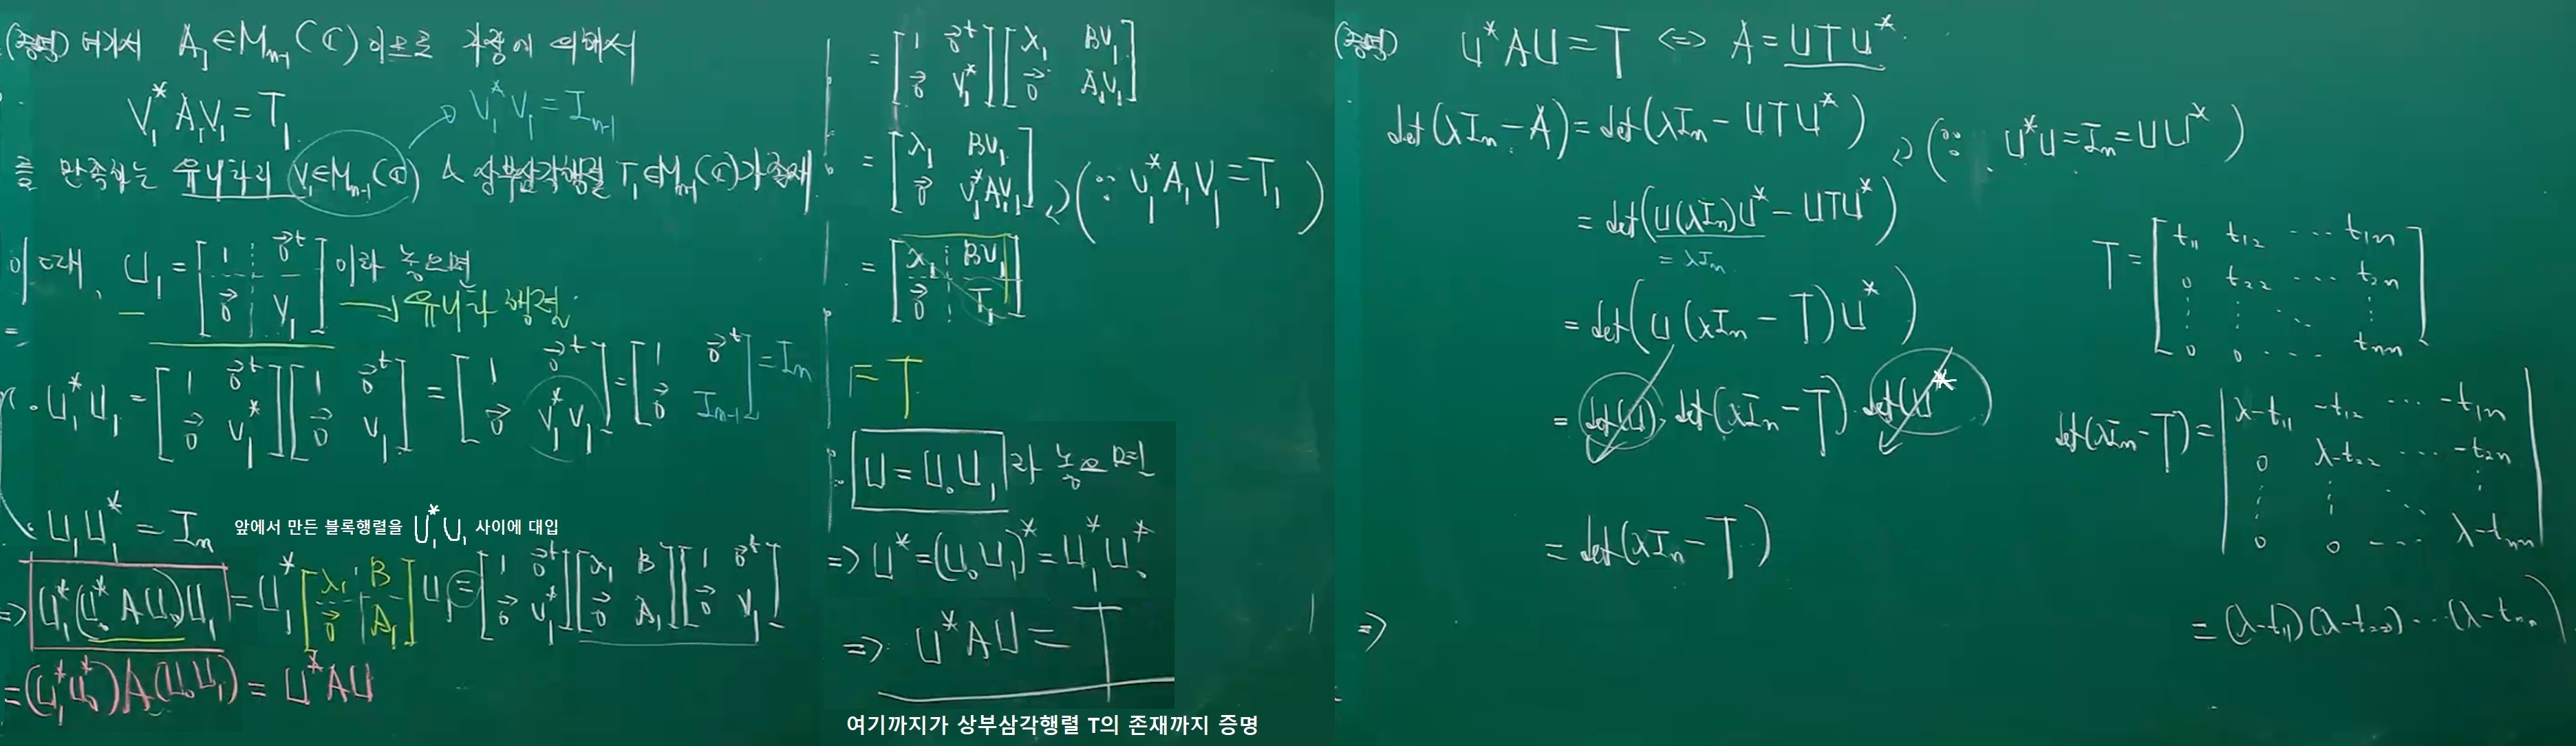 (증명) 여기서 A₁∈Mₙ₋₁(ℂ) 이므로 가정에 의해서
V₁*A₁V₁=T₁ → V₁*V₁=Iₙ₋₁
를 만족하는 유니타리 V₁∈Mₙ₋₁(ℂ) & 상부삼각행렬 T₁∈Mₙ₋₁(ℂ)가 존재
이때, U₁ = [1 0⃗ᵗ; 0⃗ V₁] 이라 놓으면
→ 유니타리 행렬
U₁*U₁ = [1 0⃗ᵗ; 0⃗ V₁*][1 0⃗ᵗ; 0⃗ V₁] = [1 0⃗ᵗ; 0⃗ V₁*V₁] = [1 0⃗ᵗ; 0⃗ Iₙ₋₁] = Iₙ
U₁U₁* = Iₙ
앞에서 만든 블록행렬을 U₁*U₁ 사이에 대입
=> U₁*(U₀*AU₀)U₁ = U₁*[λ₁ B; 0⃗ A₁]U₁ = [1 0⃗ᵗ; 0⃗ V₁*][λ₁ B; 0⃗ A₁][1 0⃗ᵗ; 0⃗ V₁]
= (U₁*U₀*)A(U₀U₁) = U*AU
= [1 0⃗ᵗ; 0⃗ V₁*][λ₁ BV₁; 0⃗ A₁V₁]
= [λ₁ BV₁; 0⃗ V₁*A₁V₁] (∵ V₁*A₁V₁=T₁)
= [λ₁ BV₁; 0⃗ T₁]
= T
U=U₀U₁ 라 놓으면
=> U*=(U₀U₁)*=U₁*U₀*
=> U*AU = T
여기까지가 상부삼각행렬 T의 존재까지 증명
(증명) U*AU=T <=> A=UTU*
det(λIₙ-A)=det(λIₙ-UTU*) (∵ U*U=Iₙ=UU*)
= det(U(λIₙ)U*-UTU*)
= λIₙ
= det(U(λIₙ-T)U*)
= det(U)·det(λIₙ-T)·det(U*)
= det(λIₙ-T)
=>
T = [t₁₁ t₁₂ ⋯ t₁ₙ; 0 t₂₂ ⋯ t₂ₙ; ⋮ ⋮ ⋱ ⋮; 0 0 ⋯ tₙₙ]
det(λIₙ-T) = |λ-t₁₁ -t₁₂ ⋯ -t₁ₙ; 0 λ-t₂₂ ⋯ -t₂ₙ; ⋮ ⋮ ⋮; 0 0 ⋯ λ-tₙₙ|
= (λ-t₁₁)(λ-t₂₂)⋯(λ-tₙₙ)